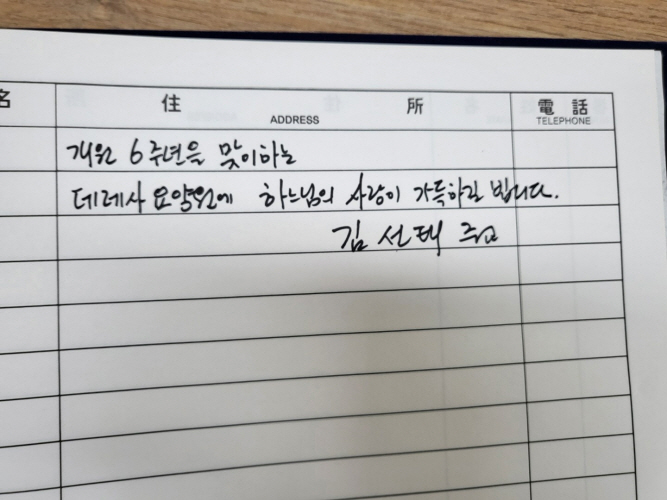 名 住 所 電 話
ADDRESS TELEPHONE
개원 6주년을 맞이하는
데레사 요양원에 하느님의 사랑이 가득하길 빕니다.
김 선태 주교